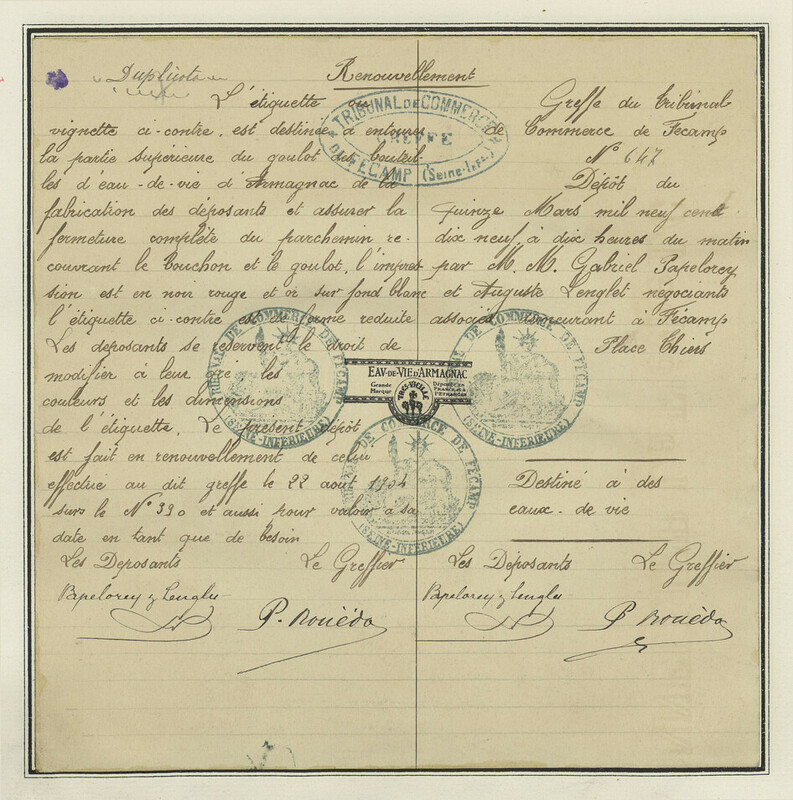 Duplicata
Renouvellement
L'étiquette ou
vignette ci-contre, est destinée à entourer
la partie supérieure du goulot des bouteil-
les d'eau-de-vie d'Armagnac de la
fabrication des déposants et assurer la
fermeture complète du parchemin re-
couvrant le bouchon et le goulot, l'impres
sion est en noir rouge et or sur fond blanc
l'étiquette ci-contre est de forme reduite
Les deposants se réservent le droit de
modifier à leur gré les
couleurs et les dimensions
de l'étiquette. Le présent dépôt
est fait en renouvellement de celui
effectué au dit greffe le 22 aout 1904
sous le N° 390 et aussi pour valoir à sa
date en tant que de besoin
Les Deposants Le Greffier
Papelorey & Lenglet
P. Rouëda
Greffe du Tribunal
de Commerce de Fécamp
N° 647
Dépôt du
Quinze Mars mil neuf cent
dix neuf, à dix heures du matin
par M. M. Gabriel Papelorey
et Auguste Lenglet négociants
associés demeurant à Fécamp
Place Thiers
Destiné à des
eaux-de-vie
Les Déposants Le Greffier
Papelorey & Lenglet
P Rouëda
TRIBUNAL DE COMMERCE
GREFFE
DE FÉCAMP (Seine-Infre)
TRIBUNAL DE COMMERCE DE FÉCAMP
(SEINE-INFÉRIEURE)
EAV-DE-VIE D'ARMAGNAC
Grande
Marque
TRÈS-VIEILLE
Déposée en
France & à
l'Étranger
TRIBUNAL DE COMMERCE DE FÉCAMP
(SEINE-INFÉRIEURE)
TRIBUNAL DE COMMERCE DE FÉCAMP
(SEINE-INFÉRIEURE)